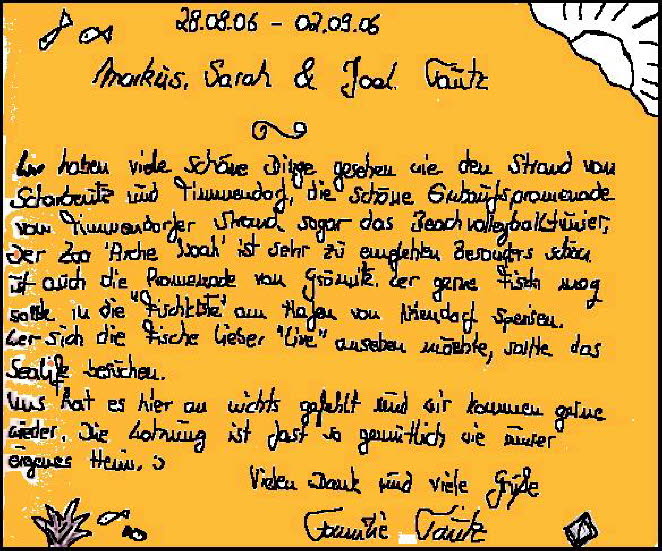 28.08.06 - 02.09.06
Markus, Sarah & Joel Tautz
Wir haben viele schöne Dinge gesehen wie den Strand von
Scharbeutz und Timmendorf, die schöne Einkaufspromenade
vom Timmendorfer Strand, sogar das Beachvolleyballtunier,
Der Zoo 'Arche Noah' ist sehr zu empfehlen Besonders schön
ist auch die Promenade von Grömitz. Wer gerne Fisch mag
sollte in die "Fischkiste" am Hafen von Niendorf speisen.
Wer sich die Fische lieber "live" ansehen möchte, sollte das
Sealife besuchen.
Uns hat es hier an nichts gefehlt und wir kommen gerne
wieder. Die Wohnung ist fast so gemütlich wie unser
eigenes Heim. :)
Vielen Dank und viele Grüße
Familie Tautz